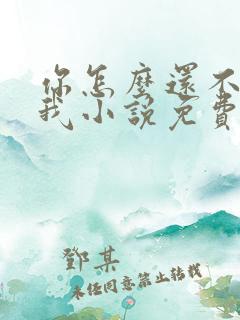 你怎麼還不
我小說免費
鄧某
未經同意禁止轉載